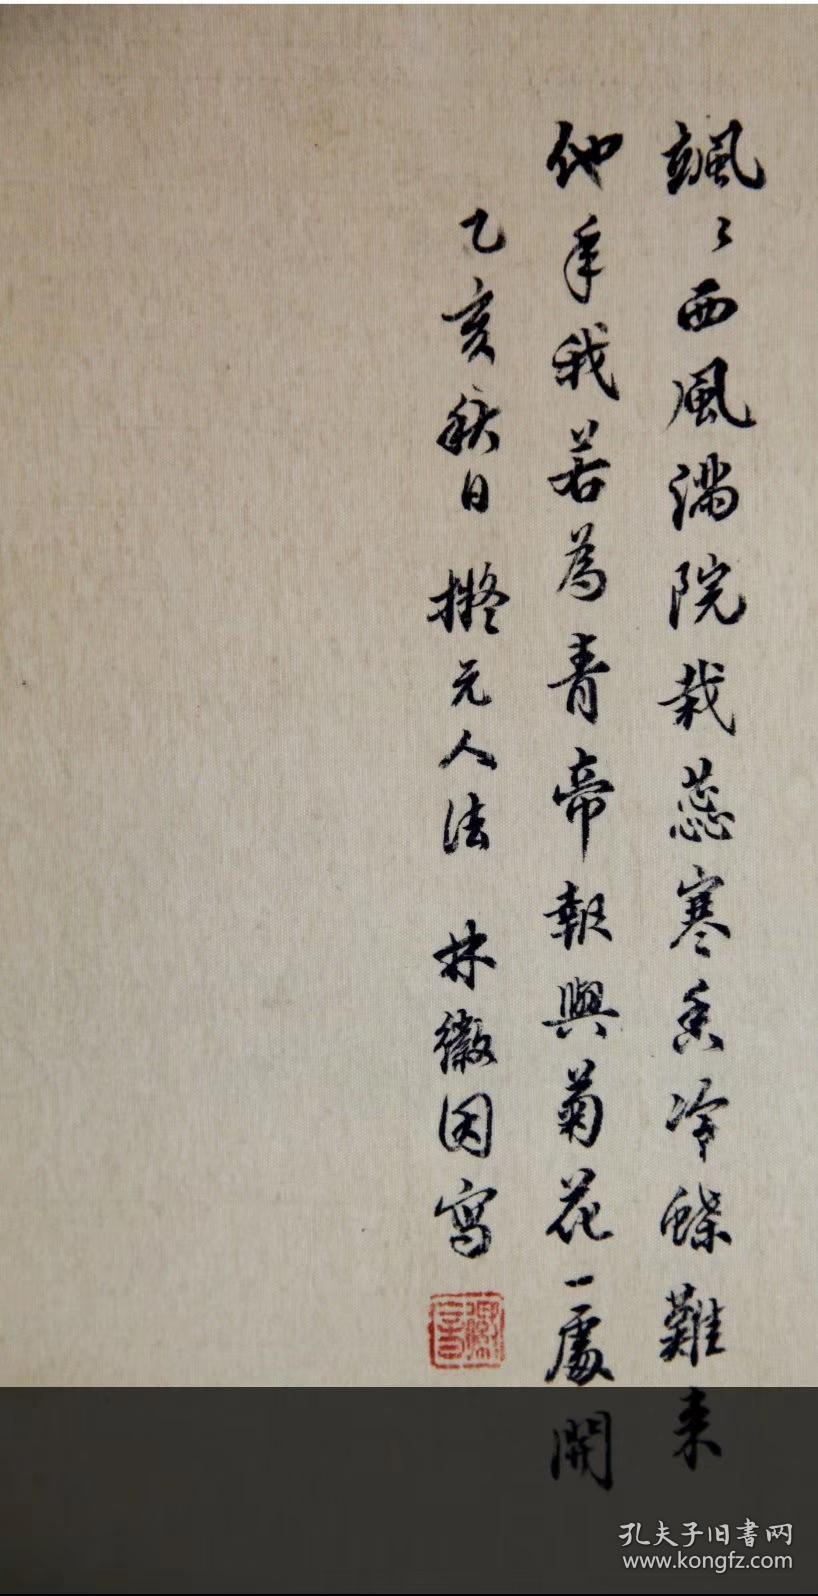 颯〻西風滿院栽蕊寒香冷蝶難来
他年我若為青帝報與菊花一處開
乙亥秋日 擬元人法 林徽因寫
徽音
孔夫子旧书网
www.kongfz.com